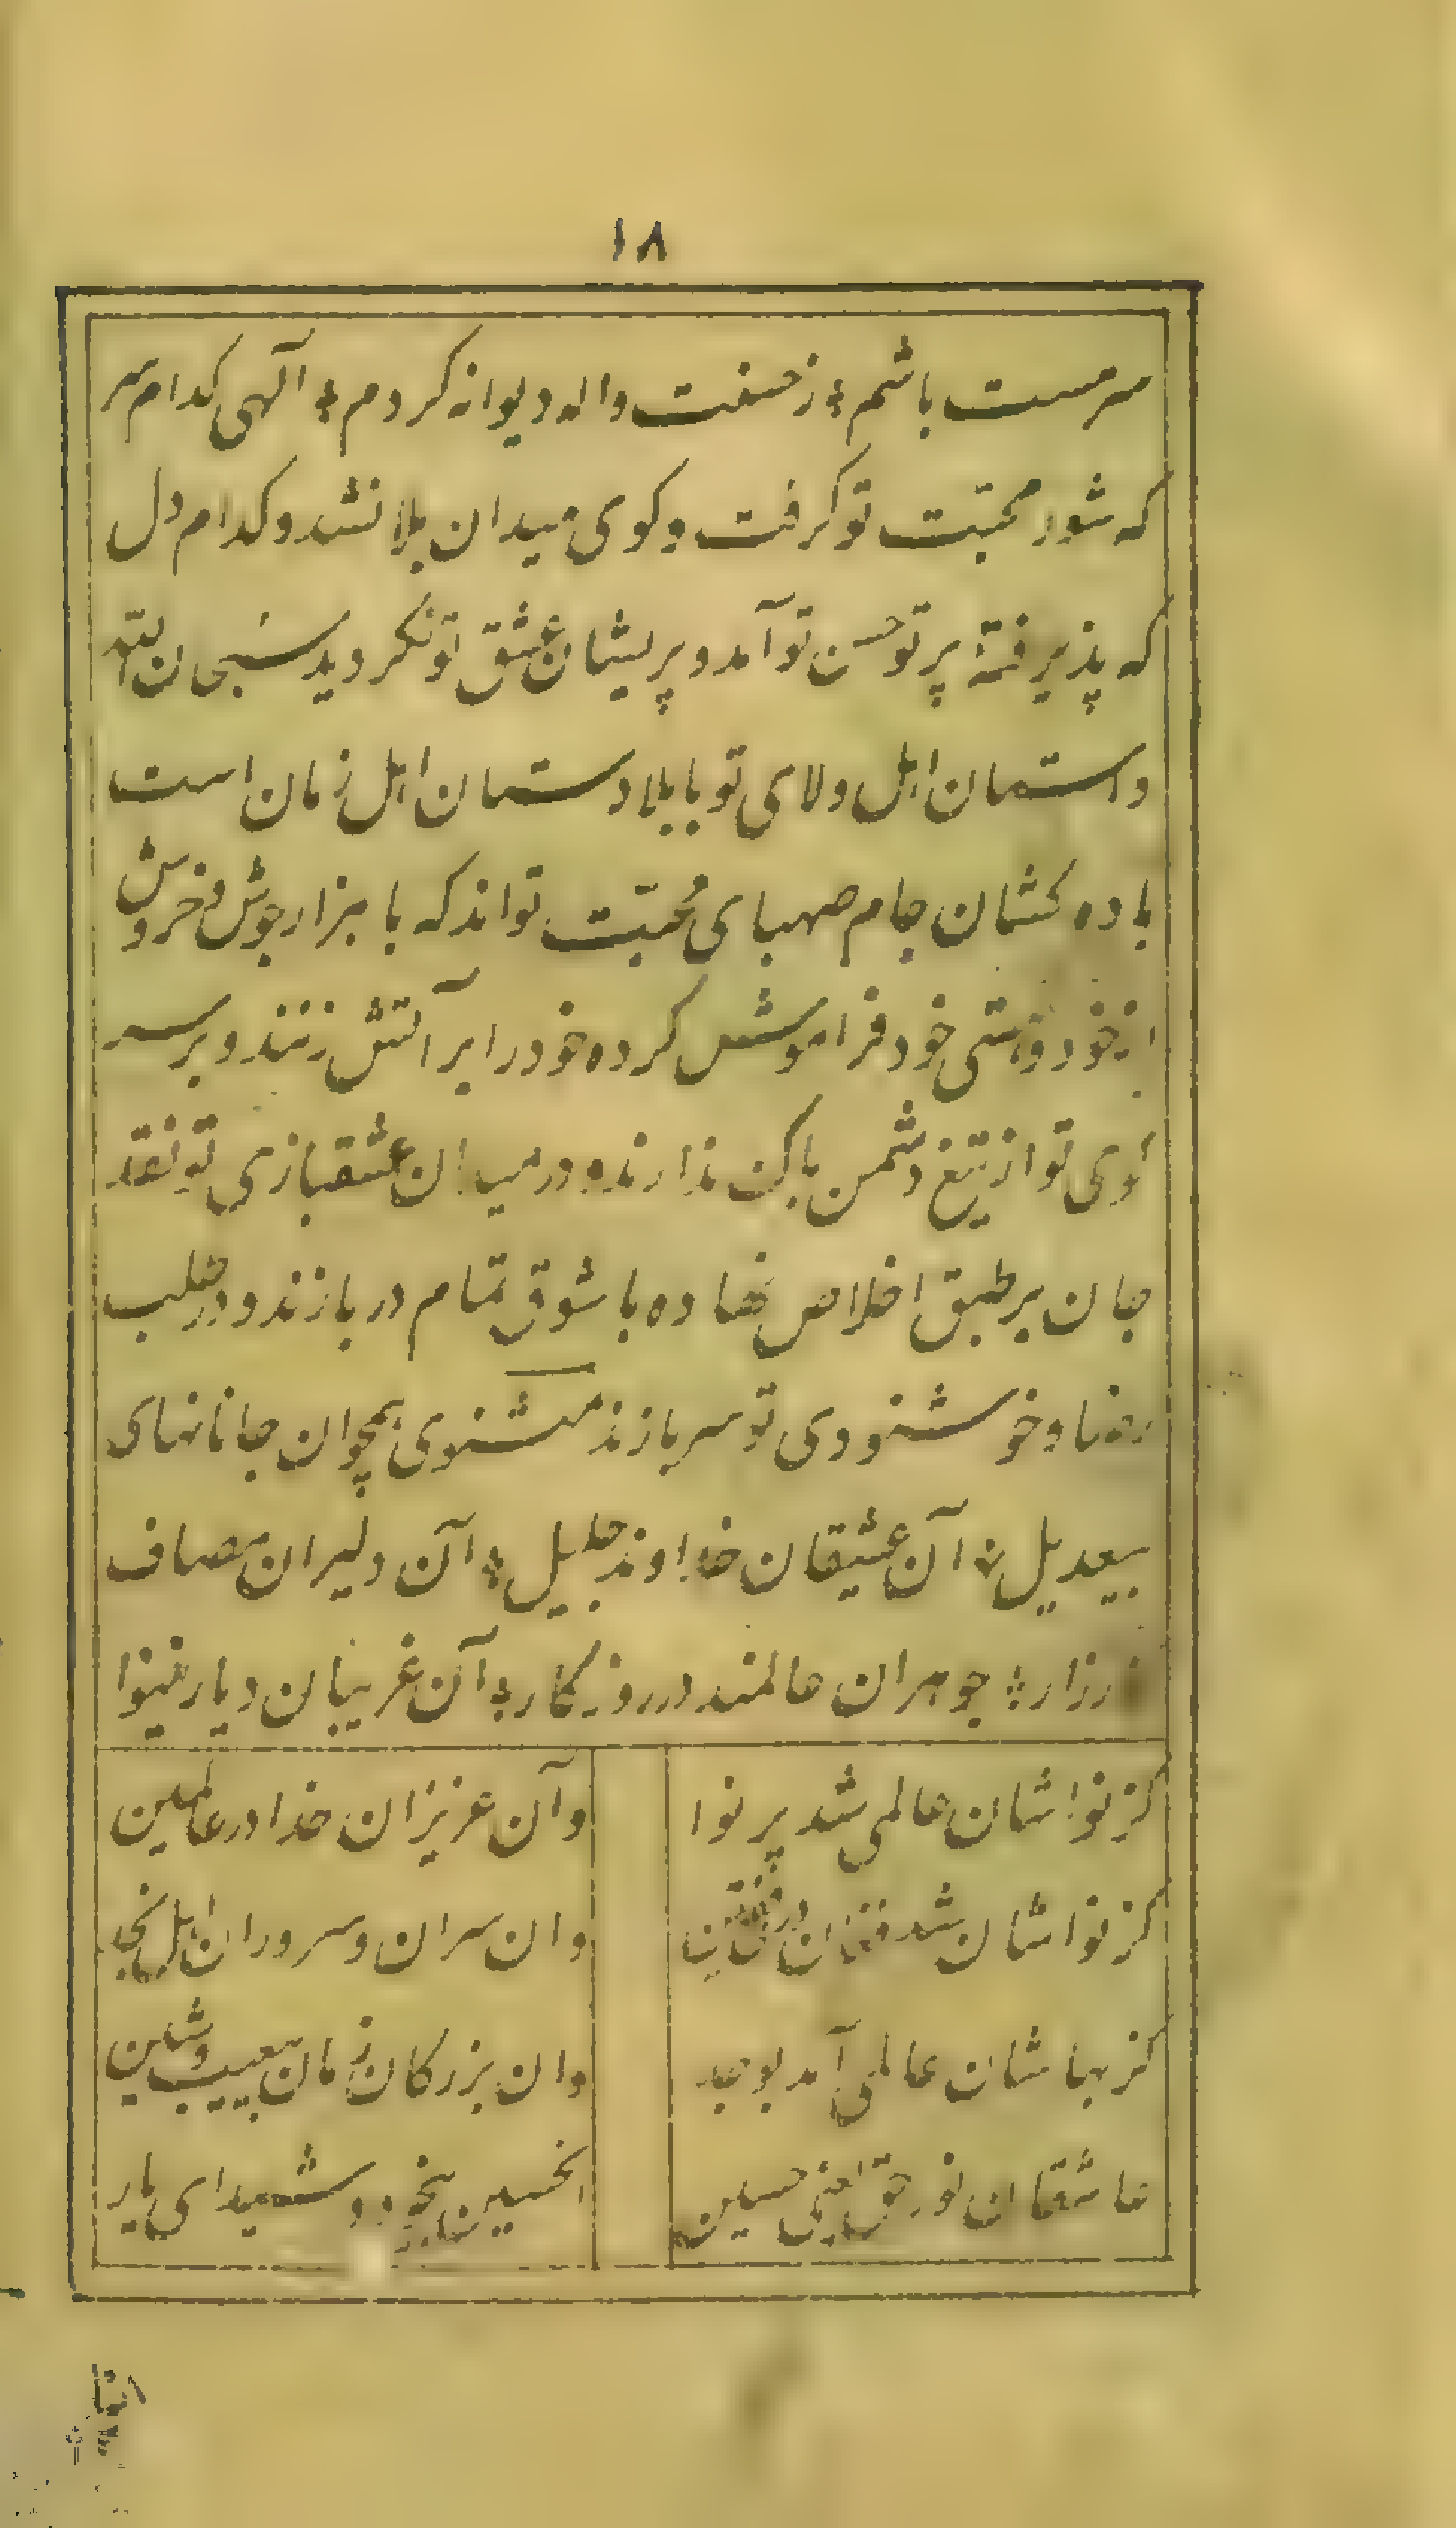 ۱۸
سرمست باشم ؛ ز حسنت واله و دیوانه کردم ؛ آلهی کدام سر
که شور محبّت تو کرفت و کوی میدان بلا نشد و کدام دل
که پذیرفتهٔ پرتو حسن تو آمد و پریشان عشق تو نکردید سبحان الله
داستان اهل ولای تو با بلا دستان اهل زمان است
باده کشان جام صهبای محبّت تواند که با هزار جوش و خروش
از خود و هستی خود فراموش کرده خود را بر آتش زنند و بر سر
کوی تو از تیغ دشمن باک ندارند و در میدان عشقبازی تو نقد
جان بر طبق اخلاص نهاده با شوق تمام در بازند و در طلب
رضا و خوشنودی تو سر بازند مثنوی همچوان جانانهای
بیعدیل ؛ آن عشیقان خداوند جلیل ؛ آن دلیران مصاف
رزار ؛ جوهران عالمند در روزکار ؛ آن غریبان دیار نینوا
کز نواشان عالمی شد پر نوا وآن عزیزان خدا در عالمین
کز نواشان شد فغان در وان سران و سروران اهل نجد
کز بهاشان عالمی آمد بوجد وان بزرکان زمان بیعیب و شین
عاشقان نور حق اعنی حسین انحسین بیخود و شیدای یار